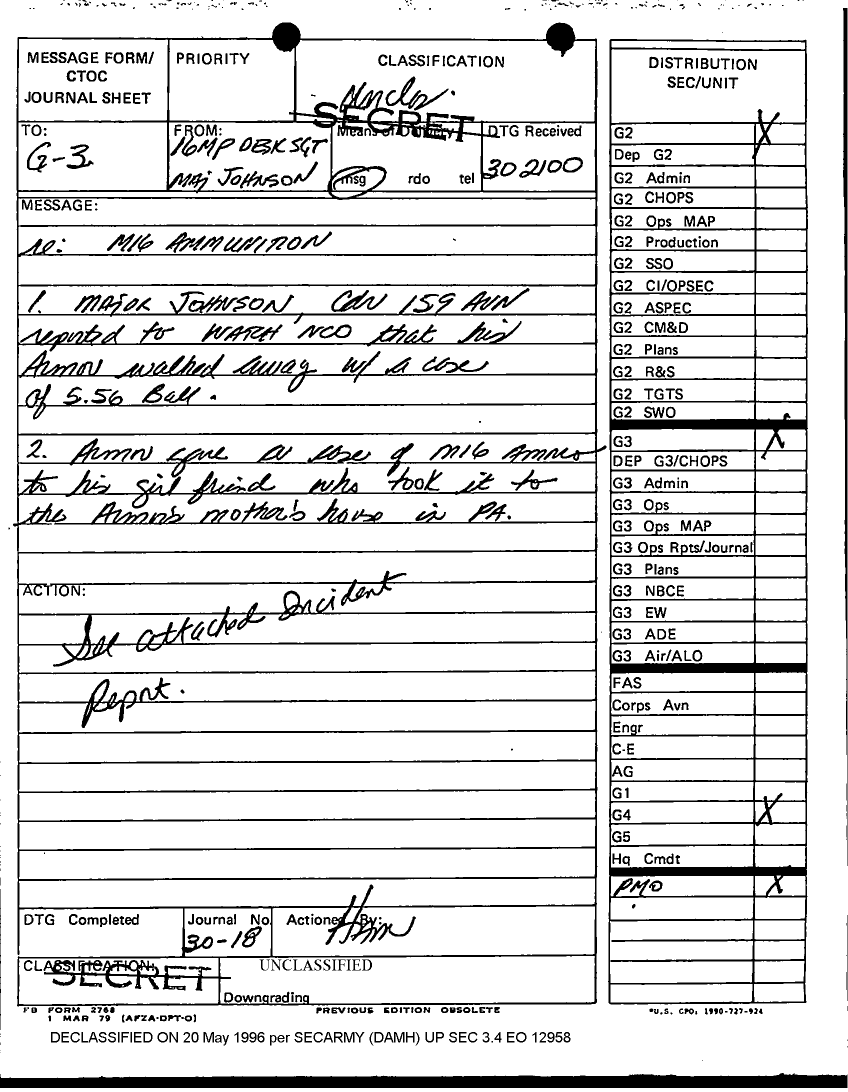 MESSAGE FORM/
CTOC
JOURNAL SHEET
PRIORITY
CLASSIFICATION
Unclas.
SECRET
TO:
G-3
FROM:
16MP DESK SGT
MAJ JOHNSON
Means of Delivery
msg rdo tel
DTG Received
302100
MESSAGE:
re: M16 AMMUNITION
1. MAJOR JOHNSON, Cdr 159 AVN
reported to WATCH NCO that his
Armor walked away w/ a case
of 5.56 Ball.
2. Armor gave a case of M16 Ammo
to his girl friend who took it to
the Armor's mother's house in PA.
ACTION:
See attached Incident
Report.
DTG Completed
Journal No.
30-18
Actioned By:
CLASSIFICATION:
SECRET
UNCLASSIFIED
Downgrading
FB FORM 2768
1 MAR 79 (AFZA-DPT-O)
PREVIOUS EDITION OBSOLETE
DISTRIBUTION
SEC/UNIT
G2 X
Dep G2
G2 Admin
G2 CHOPS
G2 Ops MAP
G2 Production
G2 SSO
G2 CI/OPSEC
G2 ASPEC
G2 CM&D
G2 Plans
G2 R&S
G2 TGTS
G2 SWO
G3 X
DEP G3/CHOPS
G3 Admin
G3 Ops
G3 Ops MAP
G3 Ops Rpts/Journal
G3 Plans
G3 NBCE
G3 EW
G3 ADE
G3 Air/ALO
FAS
Corps Avn
Engr
C-E
AG
G1
G4 X
G5
Hq Cmdt
PMO X
*U.S. CPO: 1990-727-924
DECLASSIFIED ON 20 May 1996 per SECARMY (DAMH) UP SEC 3.4 EO 12958